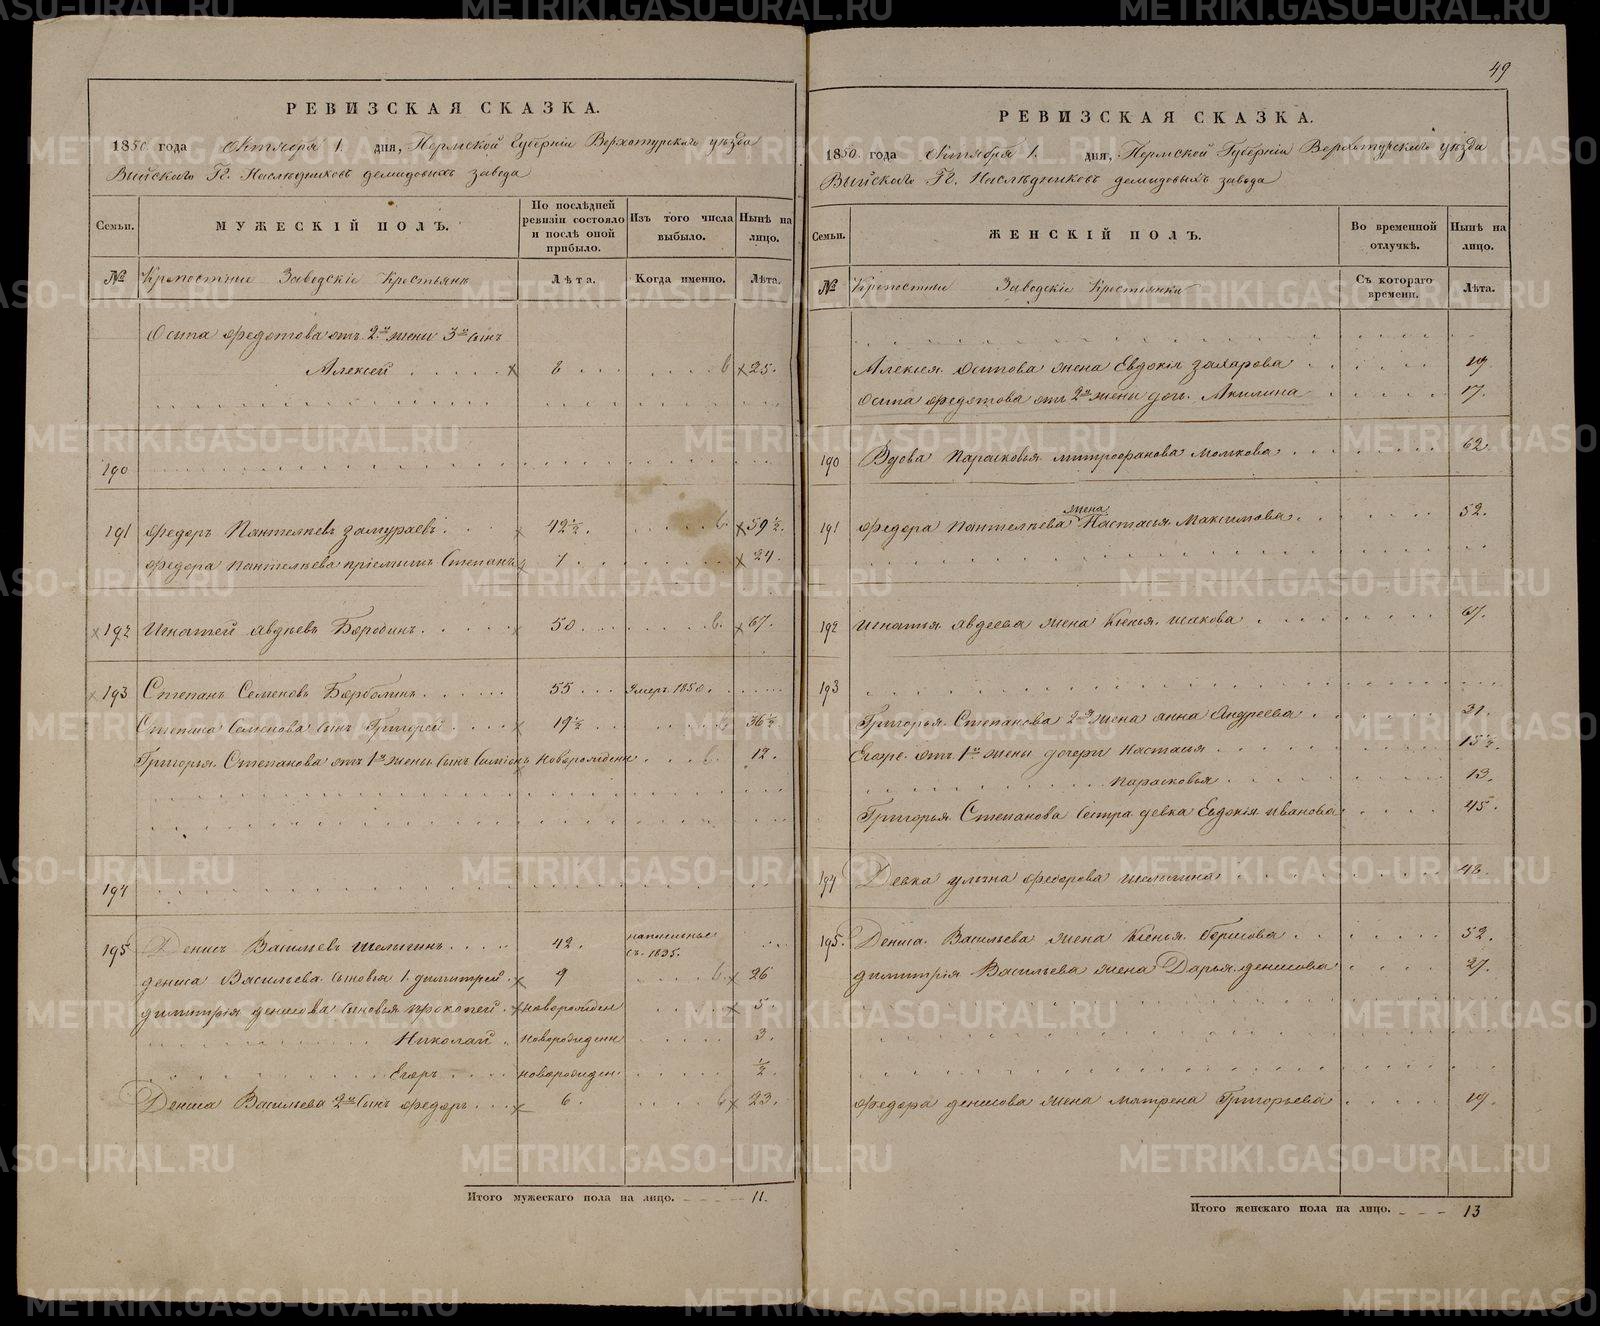 49
РЕВИЗСКАЯ СКАЗКА.
1850 года Октября 1. дня, Пермской Губерніи Верхотурскаго уѣзда
Выйскаго Гг. Наслѣдниковъ демидовыхъ завода
Семьи.
МУЖЕСКІЙ ПОЛЪ.
По послѣдней ревизіи состояло и послѣ оной прибыло.
Изъ того числа выбыло.
Нынѣ на лицо.
№ Крепостные Заводскіе Крестьяне Лѣта. Когда именно. Лѣта.
Осипа Федотова отъ 2й жены 3й сынъ
Алексей 8 25.
190
191 Федоръ Пантелѣевъ 42½. 59½.
Федора Пантелѣева пріемышъ Степанъ 7 24.
192 Игнатей Авдѣевъ Бородинъ 50 67.
193 Степанъ Семеновъ 55 Умеръ 1850.
Степана Семенова сынъ Григорей 19½ 36½
Григорья Степанова отъ 1й жены сынъ новорожденъ 12.
194
195 Денисъ Васильевъ Шелыгинъ 42. 1835.
дениса Васильева сыновья 1. димитрей 9 26
димитрія денисова сыновья Прокопей новорожден 5
Николай новорожденъ 3.
Егоръ новорожден. ½
Дениса Васильева 2й сынъ Федоръ 6. 23.
Итого мужескаго пола на лицо. 11.
РЕВИЗСКАЯ СКАЗКА.
1850 года Октября 1. дня, Пермской Губерніи Верхотурскаго уѣзда
Выйскаго Гг. Наслѣдниковъ демидовыхъ завода
Семьи.
ЖЕНСКІЙ ПОЛЪ.
Во временной отлучкѣ.
Нынѣ на лицо.
№ Крепостные Заводскіе Крестьянки Съ котораго времени. Лѣта.
Алексея Осипова жена Евдокія Захарова 19
Осипа Федотова отъ 2й жены дочь Акилина 17.
190 Вдова Парасковья Митрофанова 62.
191 Федора Пантелѣева жена Настасья Максимова 52.
192 Игнатья Авдеева жена Ксенья Исакова 67.
193
Григорья Степанова 2я жена Анна Андреева 31.
Егоже отъ 1й жены дочери Настасья 15½.
Парасковья 13.
Григорья Степанова сестра девка Евдокія Иванова 45.
194 Девка Ульяна Федорова Шелыгина 48.
195. Дениса Васильева жена Ксенья Борисова 52.
димитрія Васильева жена Дарья денисова 27.
Федора денисова жена Матрена Григорьева 19.
Итого женскаго пола на лицо. 13